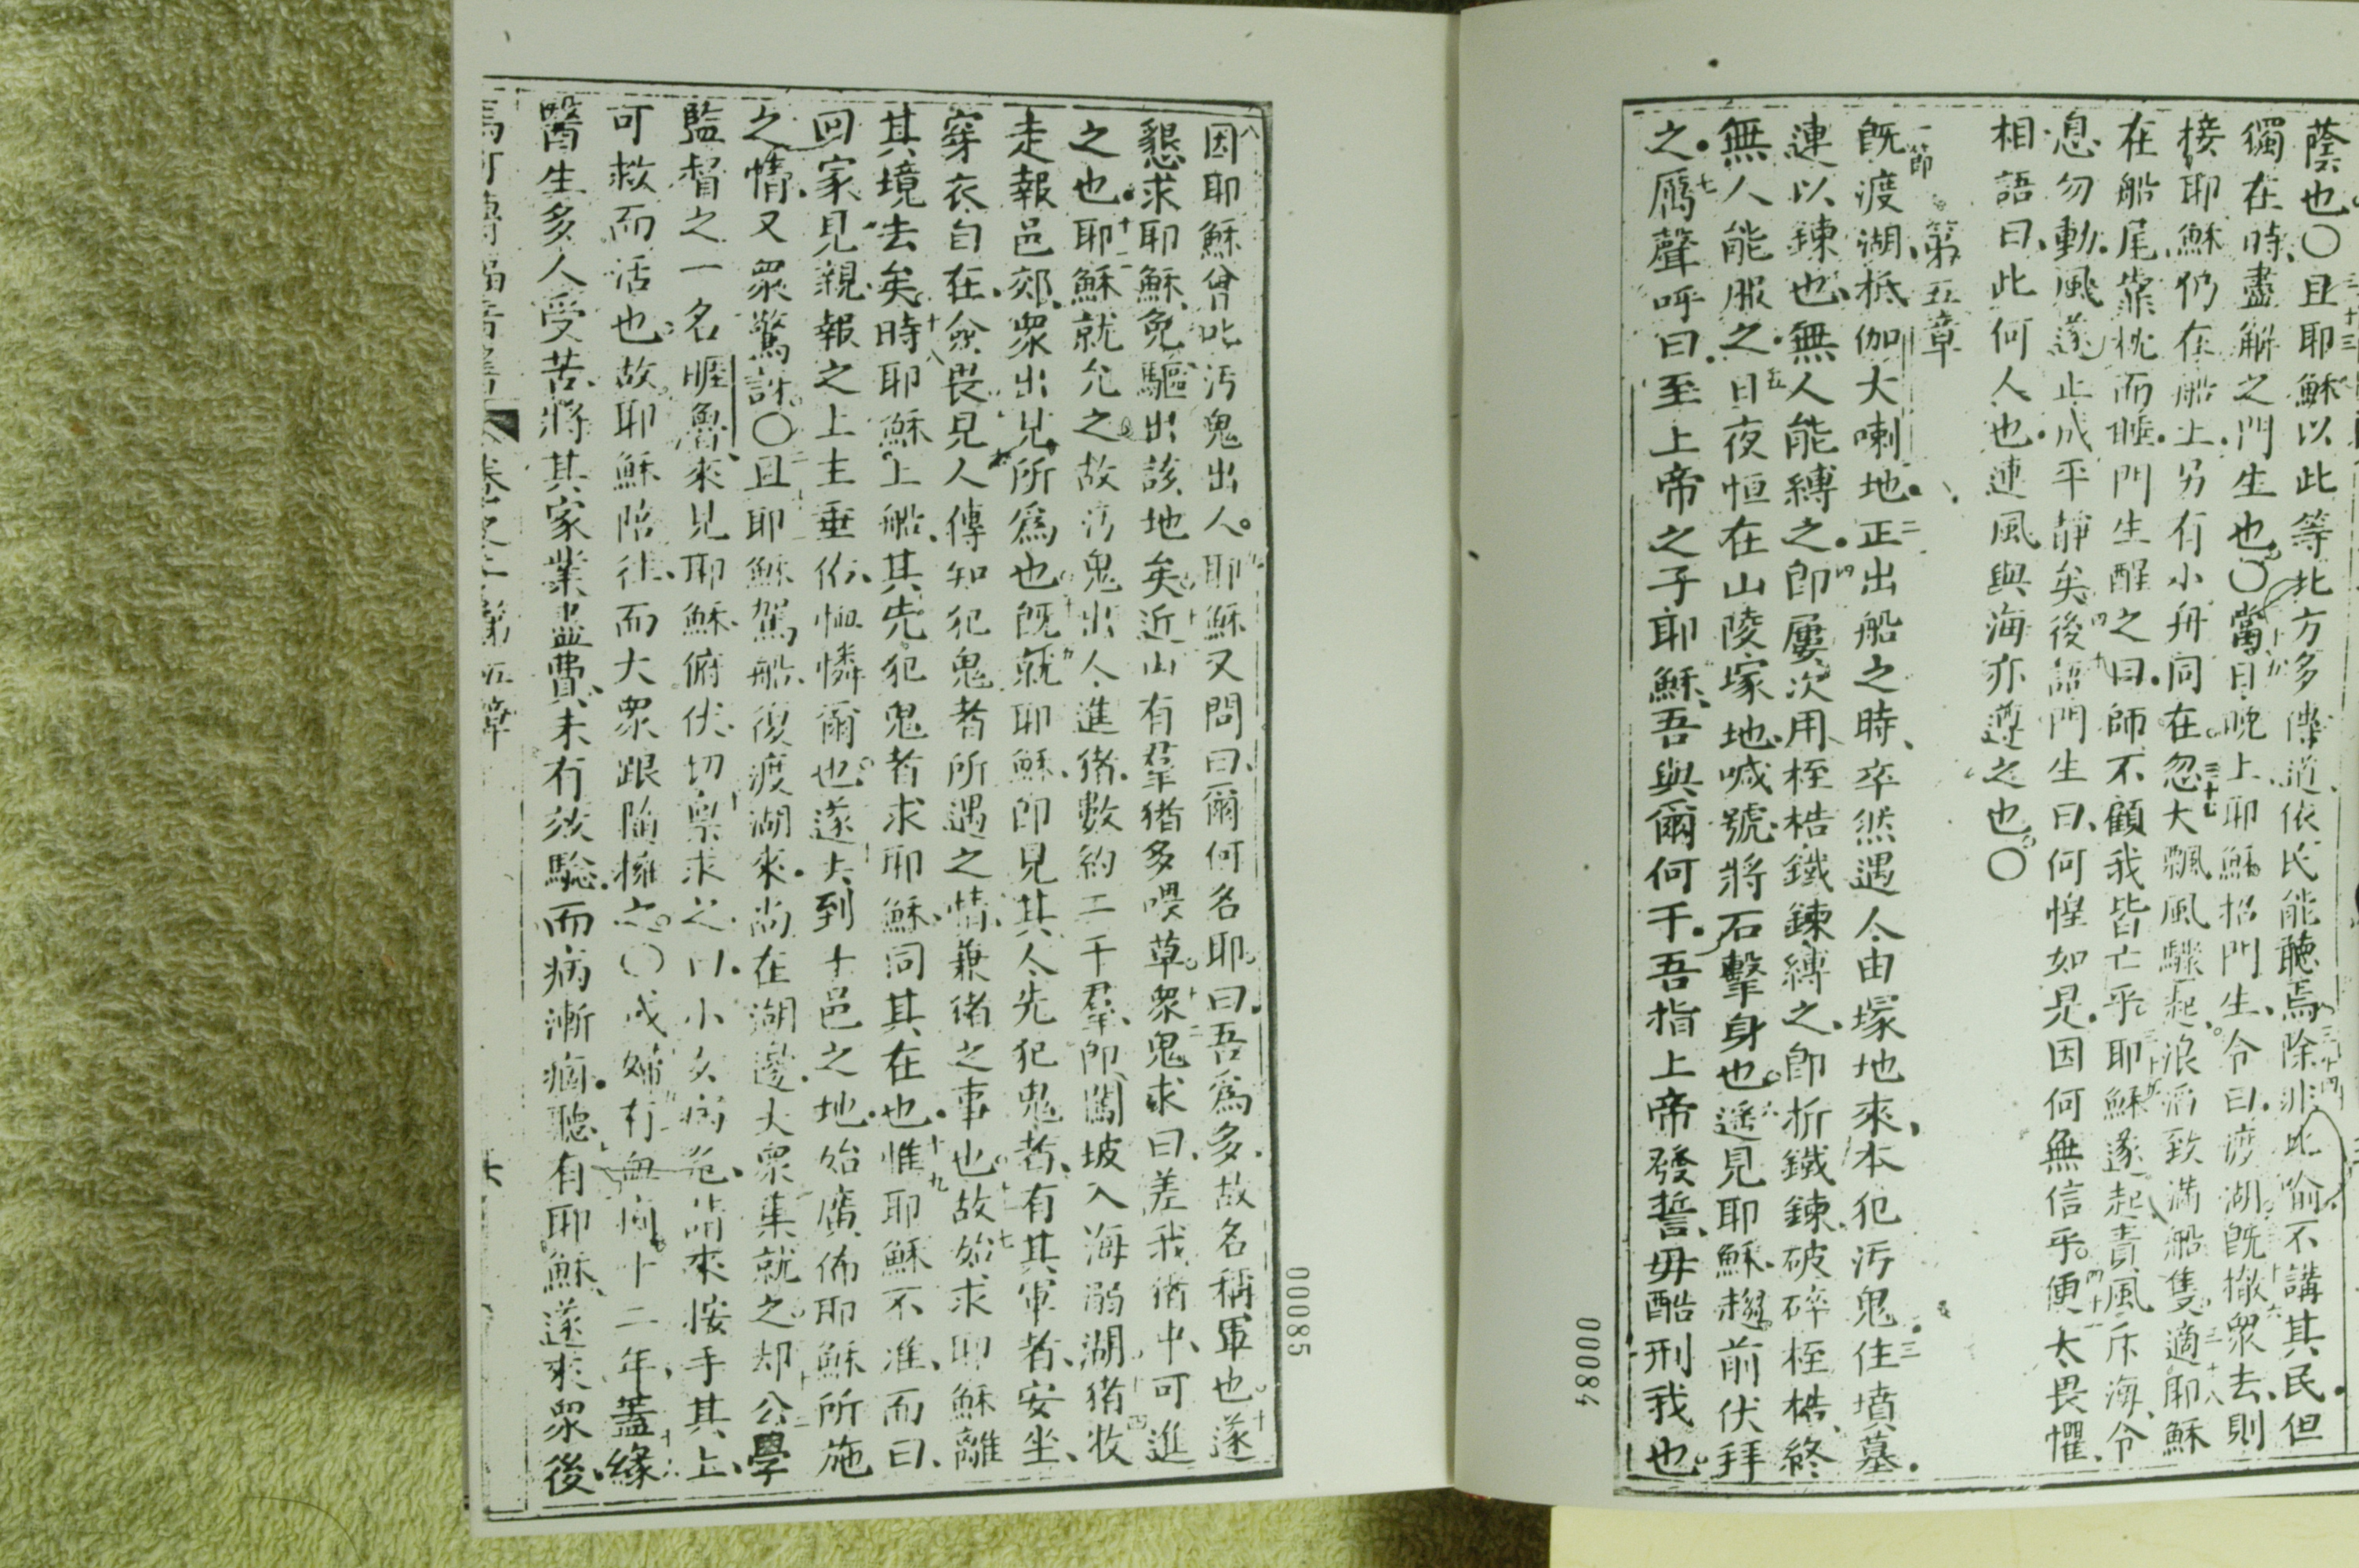 蔭也〇且耶穌以此等比方多傳道依民能聽焉除非比喻不講其民但
獨在時盡解之門生也〇當日晚上耶穌招門生令曰渡湖旣撤衆去則
接耶穌仍在船上另有小舟同在忽大飄風驟起浪涌致滿船隻適耶穌
在船尾靠枕而睡門生醒之曰師不顧我皆亡乎耶穌遂起責風斥海令
息勿動風遂止成平靜矣後語門生曰何惶如是因何無信乎便太畏懼
相語曰此何人也連風與海亦遵之也〇
一節 第五章
旣渡湖柢伽大喇地二正出船之時卒然遇人由塚地來本犯污鬼三住墳墓
連以鍊也無人能縛之四卽屢次用桎梏鐵鍊縛之卽折鐵鍊破碎桎梏終
無人能服之五日夜恒在山陵塚地喊號將石擊身也六遙見耶穌趨前伏拜
之七厲聲呼曰至上帝之子耶穌吾與爾何干吾指上帝發誓毋酷刑我也
00084
八因耶穌曾叱污鬼出人九耶穌又問曰爾何名耶曰吾爲多故名稱軍也十遂
懇求耶穌免驅出該地矣十一近山有羣猪多喂草十二衆鬼求曰差我猪中可進
之也十三耶穌就允之故污鬼出人進猪數約二千羣卽闖坡入海溺湖十四猪牧
走報邑郊衆出見所爲也十五旣就耶穌卽見其人先犯鬼者有其軍者安坐
穿衣自在僉畏見人傳知犯鬼者所遇之情兼猪之事也十七故始求耶穌離
其境去矣十八時耶穌上船其先犯鬼者求耶穌同其在也十九惟耶穌不准而曰
回家見親報之上主垂侕恤憐爾也二十遂去到十邑之地始廣佈耶穌所施
之情又衆驚訝〇二十一且耶穌駕船復渡湖來尚在湖邊大衆集就之二十二却公學
監督之一名睚魯來見耶穌俯伏切稟求之曰小女病危請來按手其上
可救而活也故耶穌陪往而大衆跟隨擁之〇或婦有血漏十二年蓋緣
醫生多人受苦將其家業盡費未有效騐而病漸痼聽有耶穌遂來衆後
馬可傳福音書 卷之二 第五章 六
00085